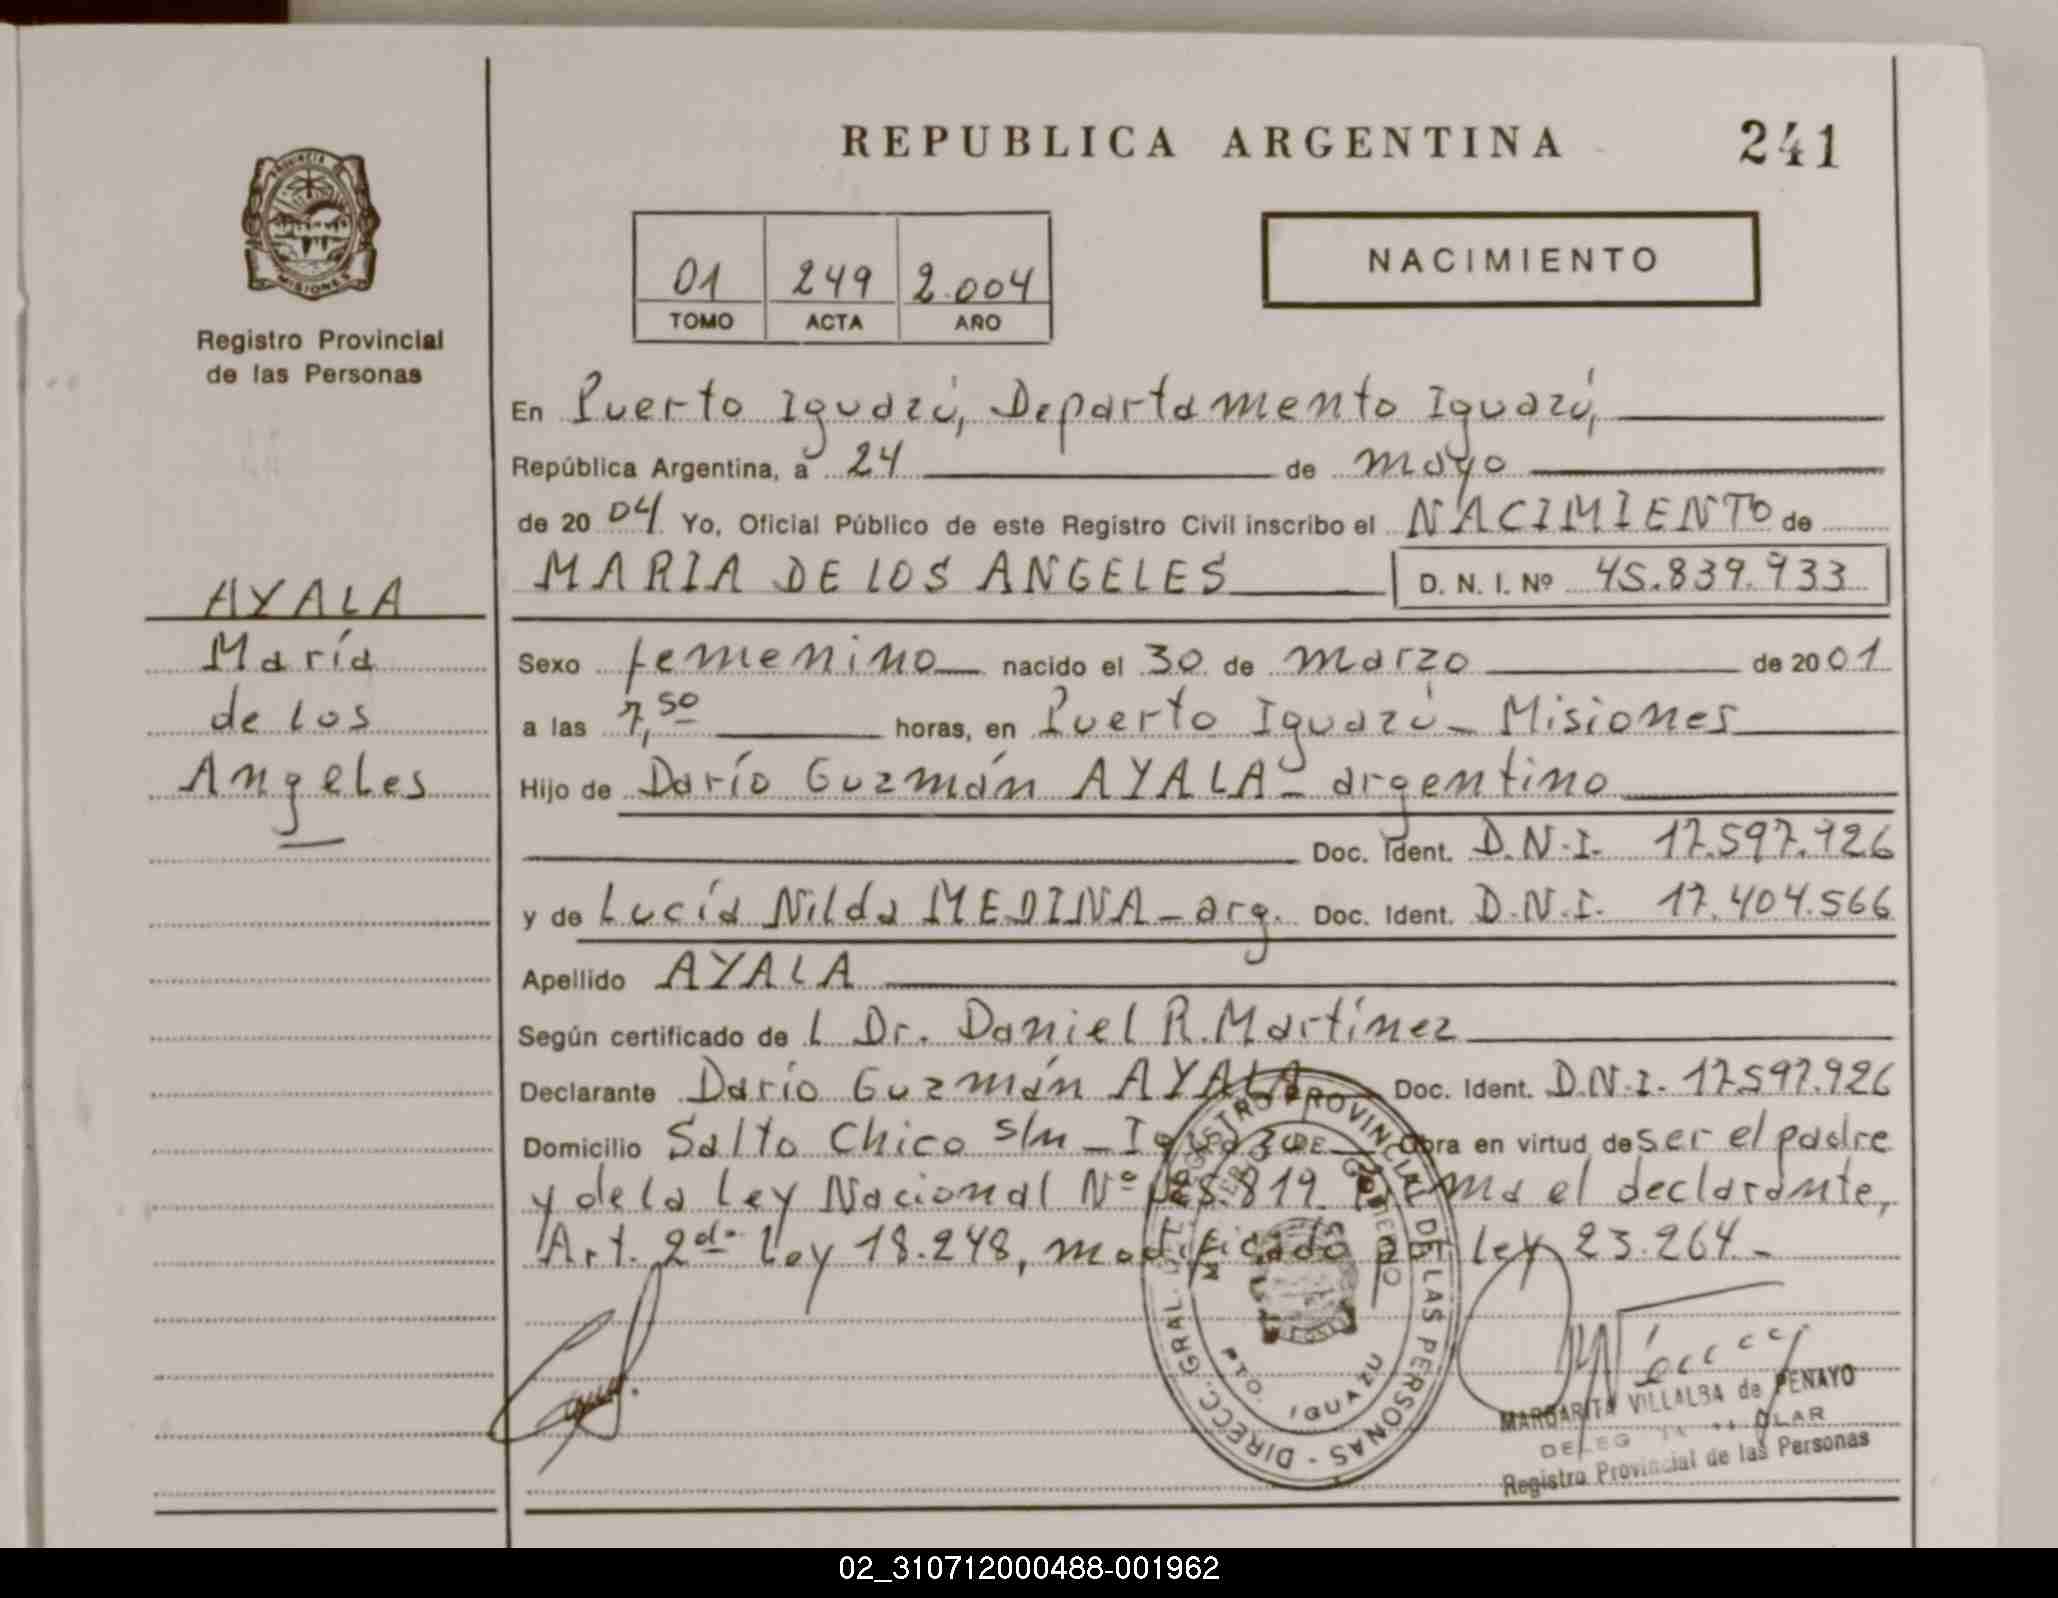 REPUBLICA ARGENTINA
241
PROVINCIA DE
MISIONES
Registro Provincial
de las Personas
01 249 2.004
TOMO ACTA AÑO
NACIMIENTO
En Puerto Iguazú, Departamento Iguazú,
República Argentina, a 24 de mayo
de 20 04 Yo, Oficial Público de este Registro Civil inscribo el NACIMIENTO de
MARIA DE LOS ANGELES D. N. I. Nº 45.839.933
AYALA
María
de los
Angeles
Sexo femenino nacido el 30 de marzo de 20 01
a las 7,50 horas, en Puerto Iguazú - Misiones
Hijo de Darío Guzmán AYALA - argentino
Doc. Ident. D.N.I. 17.597.926
y de Lucía Nilda MEDINA - arg. Doc. Ident. D.N.I. 17.404.566
Apellido AYALA
Según certificado de l Dr. Daniel R. Martínez
Declarante Darío Guzmán AYALA Doc. Ident. D.N.I. 17.597.926
Domicilio Salto Chico s/n - Iguazú - Obra en virtud de ser el padre
y de la Ley Nacional Nº 25.819. Firma el declarante,
Art. 2do Ley 18.248, modificado por Ley 23.264 -
DIRECC. GRAL. DEL REGISTRO PROVINCIAL DE LAS PERSONAS
MINISTERIO DE GOBIERNO
PTO. IGUAZU
MARGARITA VILLALBA de PENAYO
Registro Provincial de las Personas
02_310712000488-001962